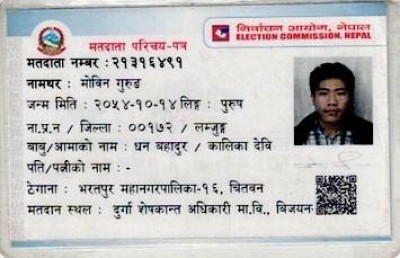 निर्वाचन आयोग, नेपाल
ELECTION COMMISSION, NEPAL
मतदाता परिचय-पत्र
मतदाता नम्बर : २१३१६४९१
नामथर : मोविन गुरुङ
जन्म मिति : २०५४-१०-१४ लिङ्ग : पुरुष
ना.प्र.न / जिल्ला : ००१७२ / लम्जुङ्ग
बाबु/आमाको नाम : धन बहादुर / कालिका देवि
पति/पत्नीको नाम : -
ठेगाना : भरतपुर महानगरपालिका-१६, चितवन
मतदान स्थल : दुर्गा शेषकान्त अधिकारी मा.वि., बिजयन